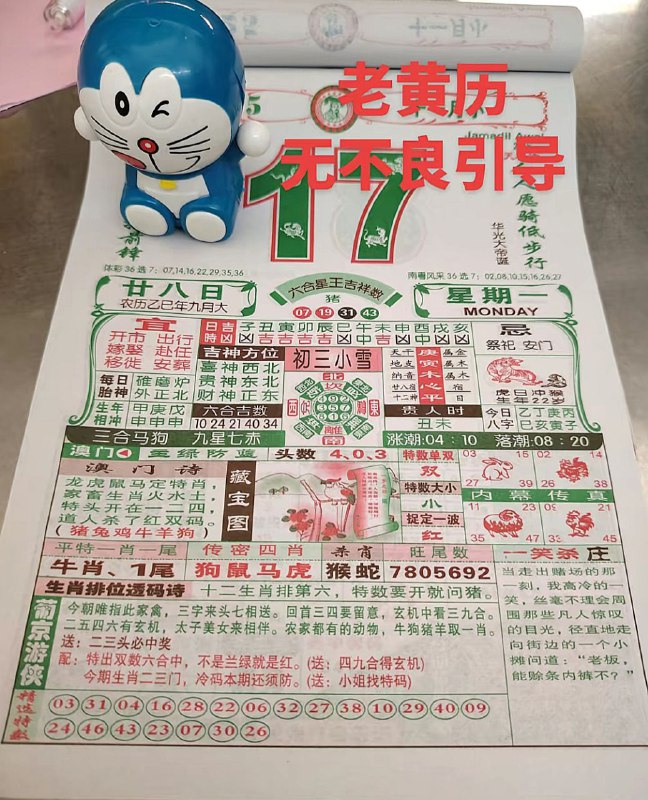 十一月小
老黄历
无不良引导
Jamadil Awal
17
愿骑低步行
华光大帝诞
体彩36选7：07,14,16,22,29,35,36
南粤风采36选7：02,08,10,15,16,26,27
廿八日
农历乙巳年九月大
六合星王吉祥数
猪
07 19 31 43
星期一
MONDAY
宜
开市 出行
嫁娶 赴任
移徙 安葬
日吉时凶
子丑寅卯辰巳午未申酉戌亥
吉神方位
喜神西北
贵神东北
财神正东
初三小雪
天干 庚 属金
地支 寅 属木
纳音 木 属木
廿八宿 心 宿
十二神 平 日
忌
祭祀 安门
虎日冲猴
生年22岁
每日胎神
碓磨炉
外正北
生年相冲
甲庚戊
申申申
六合吉数
10 24 21 50 67 42
北
西
东
南
贵人时
丑未
今日八字
乙丁庚丙
巳亥寅子
三合马狗 九星七赤
涨潮:04:10 落潮:08:20
澳门
主绿防蓝
头数 4、0、3
澳门诗
龙虎鼠马定特肖，
家畜生肖火水土，
特头开在一二四，
道人杀了红双码。
（猪兔鸡牛羊狗）
藏宝图
特数单双
双
特数大小
小
捉定一波
红
03 15
02 14
内幕传真
平特一肖一尾
牛肖、1尾
传密四肖
狗鼠马虎
杀肖
猴蛇
旺尾数
7805692
一笑杀庄
当走出赌场的那
一刻，我高冷的一
笑，丝毫不理会周
围那些凡人惊叹
的目光，径直地走
向街边的一个小
摊问道：“老板，
能赊条内裤不？”
生肖排位透码诗
十二生肖排第六，特数要开就问猪。
葡京游侠
今朝唯指此家禽，三字来头七相送。回首三四要留意，玄机中看三九合。
二五四六有玄机，太子美女来相伴。农家都有的动物，牛狗猪羊取一肖。
送：二三头必中奖
配：特出双数六合中，不是兰绿就是红。（送：四九合得玄机）
今期生肖二三门，冷码本期还须防。（送：小姐找特码）
精选特数
03 31 04 16 28 22 06 32 27 38 10 29 40 09
24 46 43 23 07 30 26